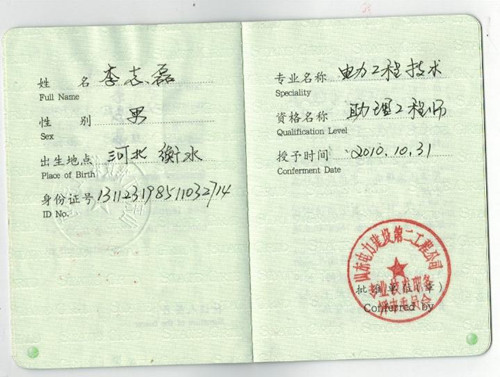 姓 名 李志磊
Full Name
性 别 男
Sex
出生地点 河北 衡水
Place of Birth
身份证号 131123198511032714
ID No.
专业名称 电力工程技术
Speciality
资格名称 助理工程师
Qualification Level
授予时间 2010.10.31
Conferment Date
山东电力建设第二工程公司
专业技术职务
评审委员会
批准单位(章)
Conferred by